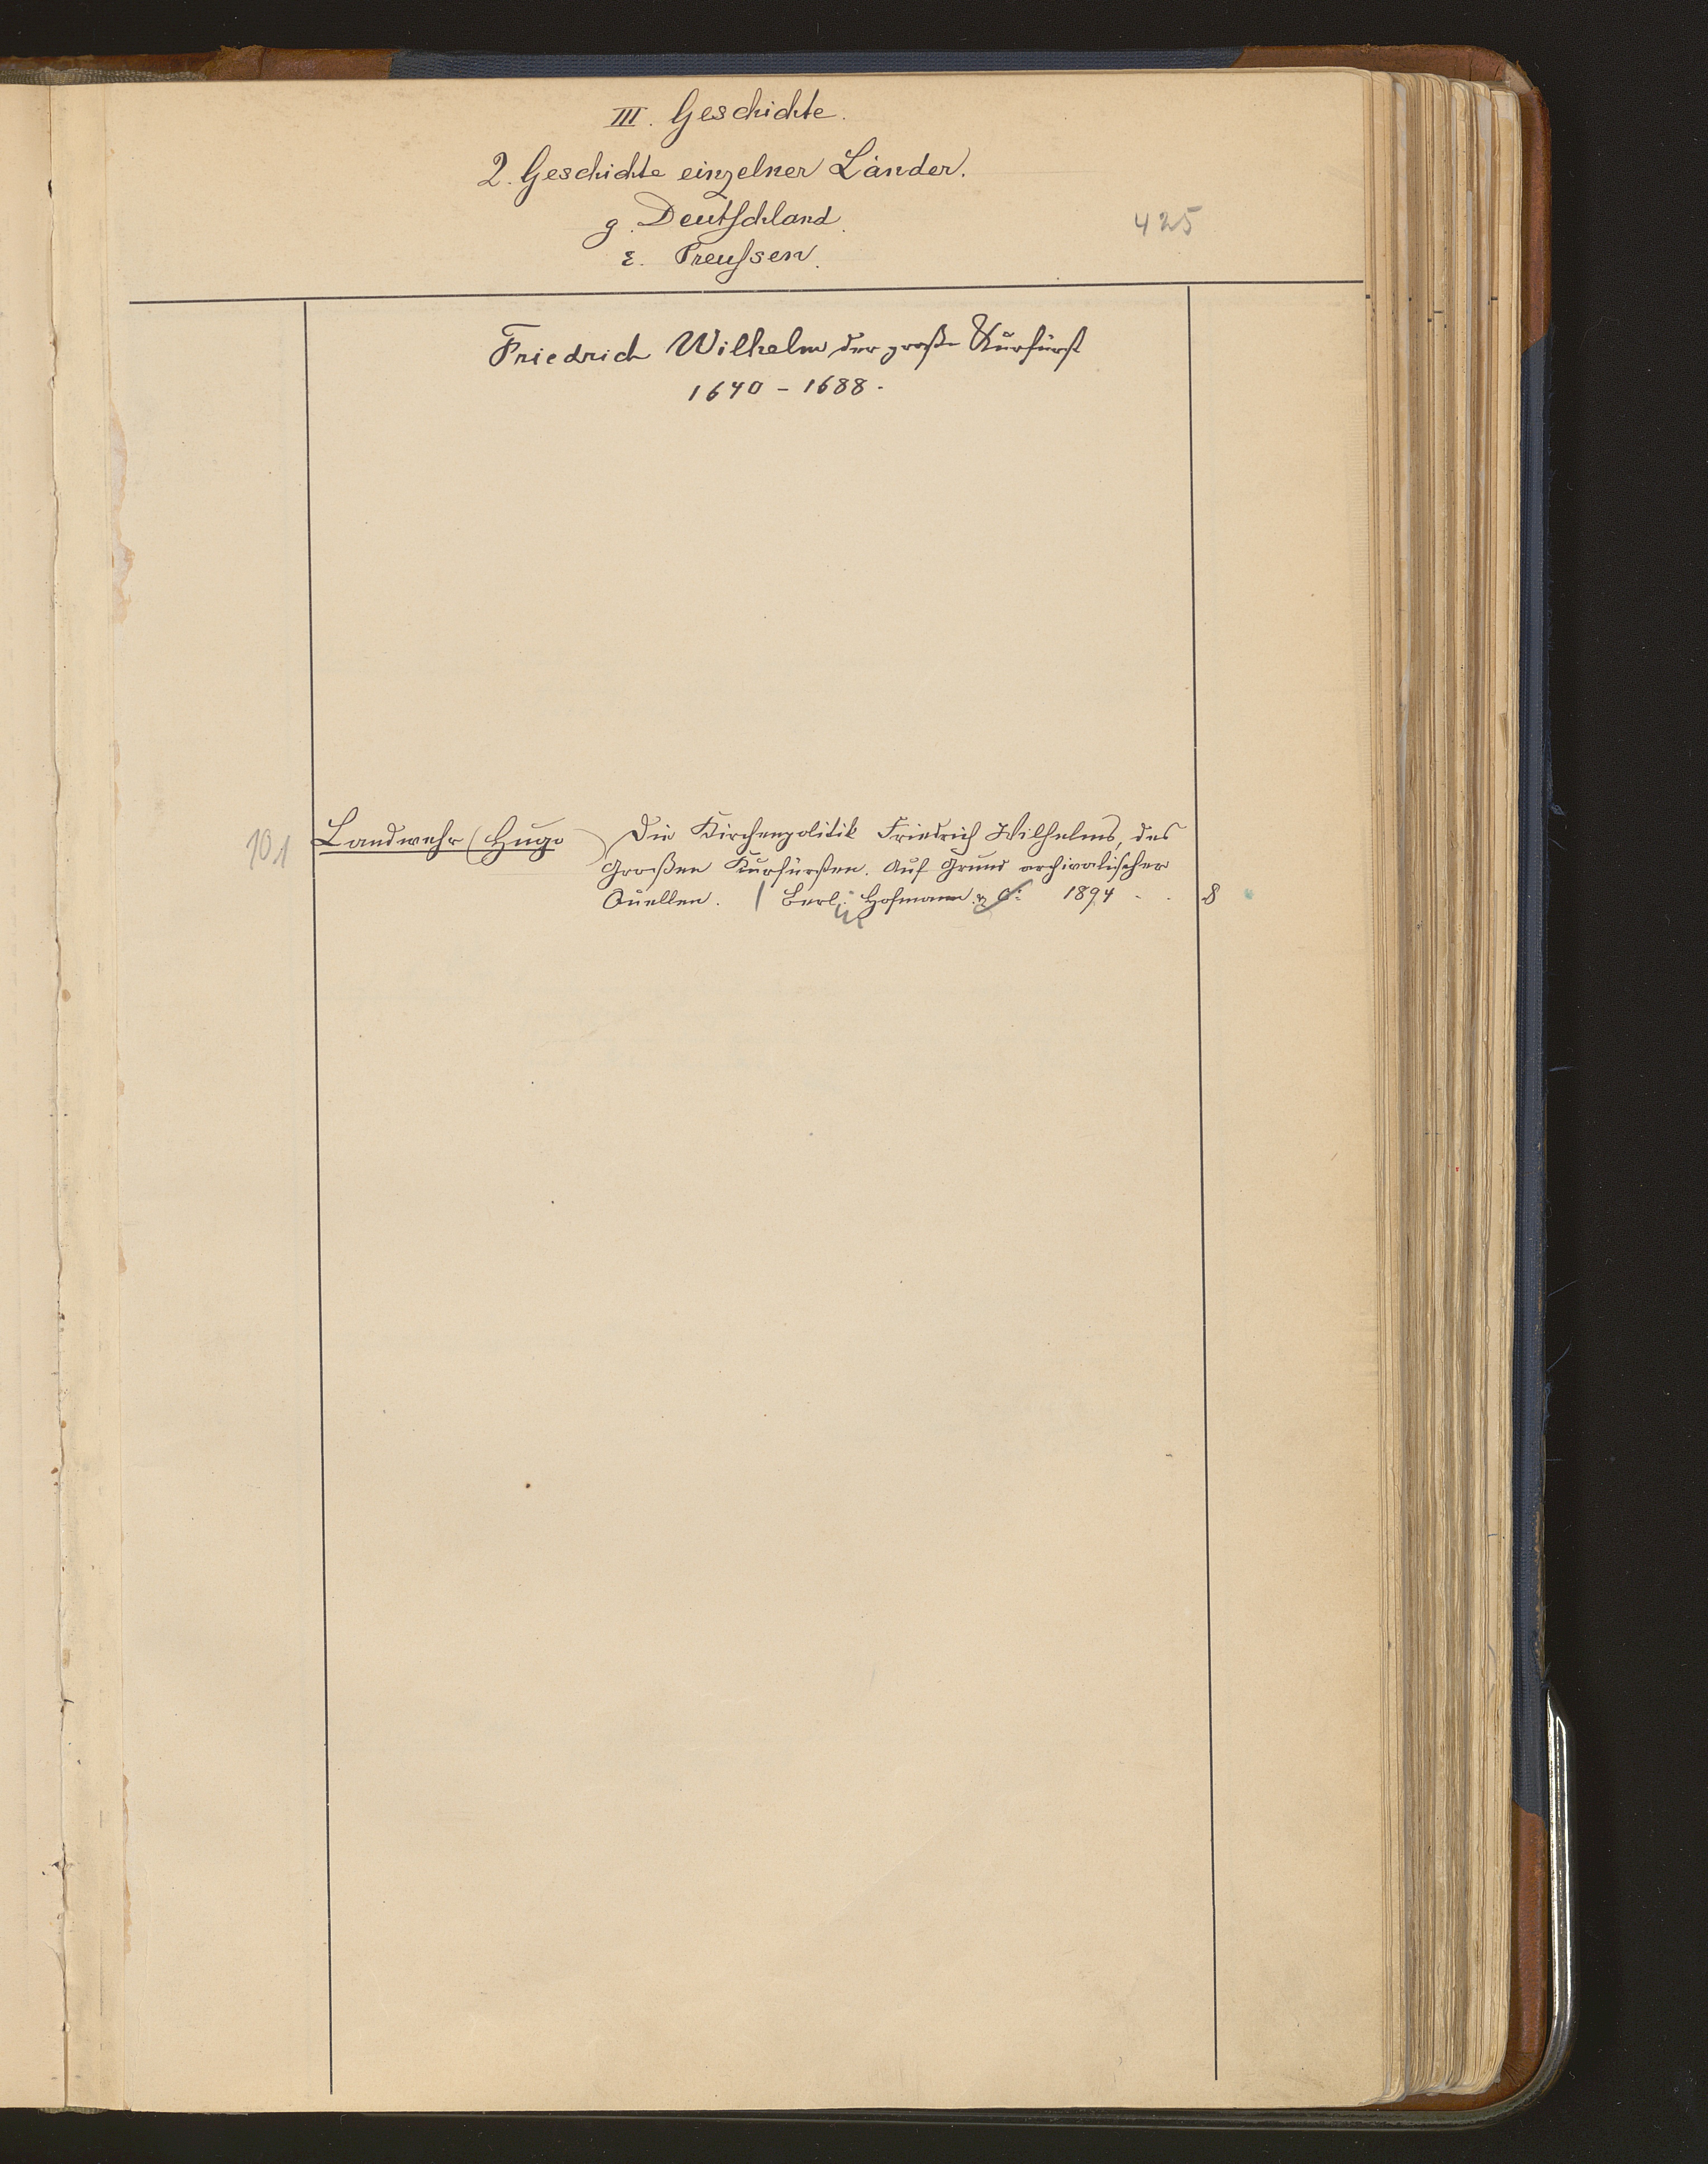 III. Geschichte.
2. Geschichte einzelner Länder.
g. Deutschland.
425
ε. Preussen.
Friedrich Wilhelm der große Kurfürst
1640 - 1688.
101 Landwehr (Hugo) Die Kirchenpolitik Friedrich Wilhelms, des
Großen Kurfürsten. Auf Grund archivalischer
Quellen. / Berl: Hofmann & C: 1894 . . 8